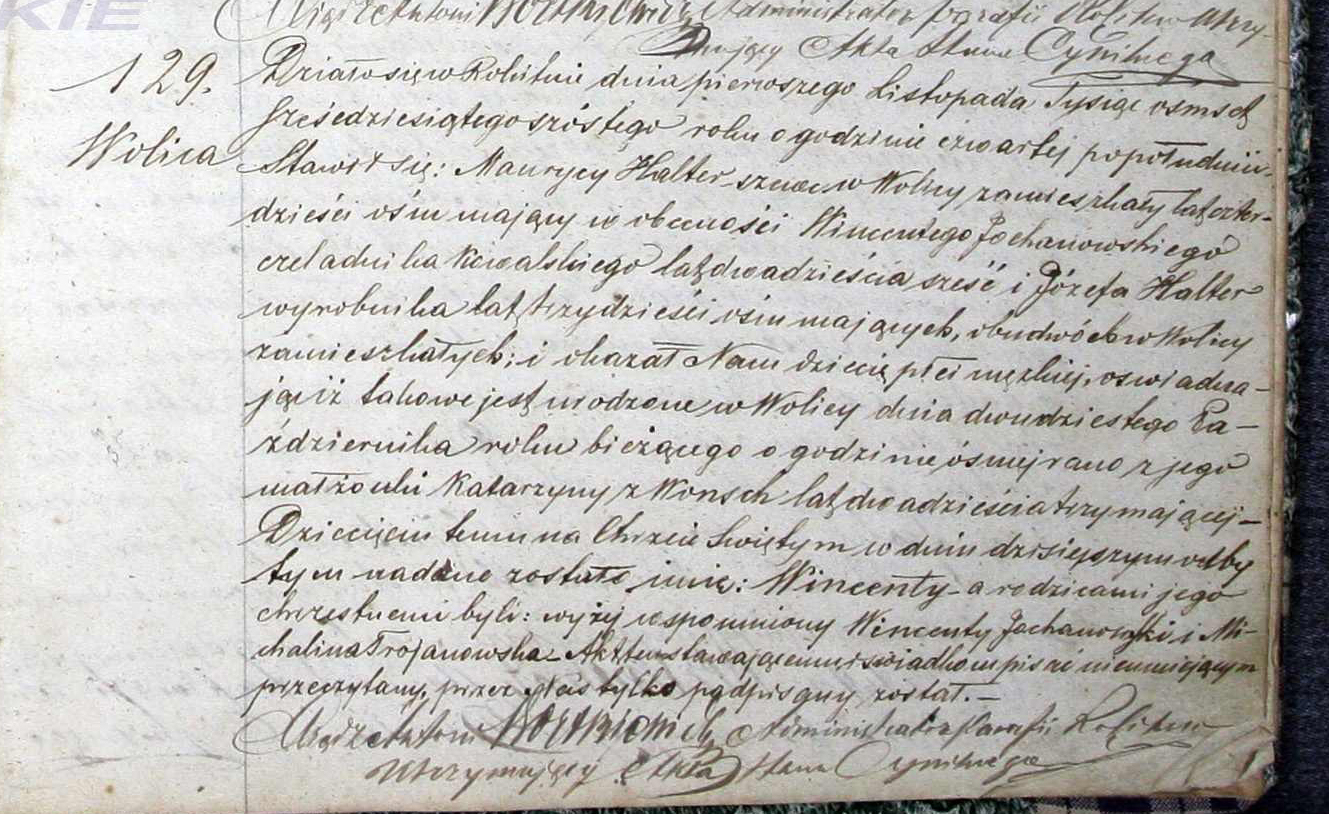 KIE
Xiądz Antoni Administrator parafii utrzy-
mujący Akta Stanu Cywilnego
129.
Wolica
Działo się w Rokitnie dnia pierwszego Listopada Tysiąc ośmset
sześćdziesiątego szóstego roku o godzinie czwartej popołudniu.
Stawił się: Maurycy Halter szewc w Wolicy zamieszkały lat czter-
dzieści ośm mający w obecności Wincentego Jochanowskiego
czeladnika Kowalskiego lat dwadzieścia sześć i Józefa Halter
wyrobnika lat trzydzieści ośm mających, obudwóch w Wolicy
zamieszkałych; i okazał Nam dziecię płci męzkiej, oswiadcza-
jąc iż takowe jest urodzone w Wolicy dnia dwudziestego Pa-
ździernika roku bieżącego o godzinie ósmej rano z jego
małżonki Katarzyny z Wonsch lat dwadzieścia trzy mającej -
Dziecięciu temu na Chrzcie Swiętym w dniu dzisiejszym odby
tym nadane zostało imię: Wincenty - a rodzicami jego
chrzestnemi byli: wyżej wspomniony Wincenty Jochanowski i Mi-
chalina Trojanowska - Akt ten stawającemu i swiadkom pisać nieumiejącym
przeczytany, przez Nas tylko podpisany został. -
Xiądz Antoni Administrator Parafii
Utrzymujący Akta Stanu Cywilnego